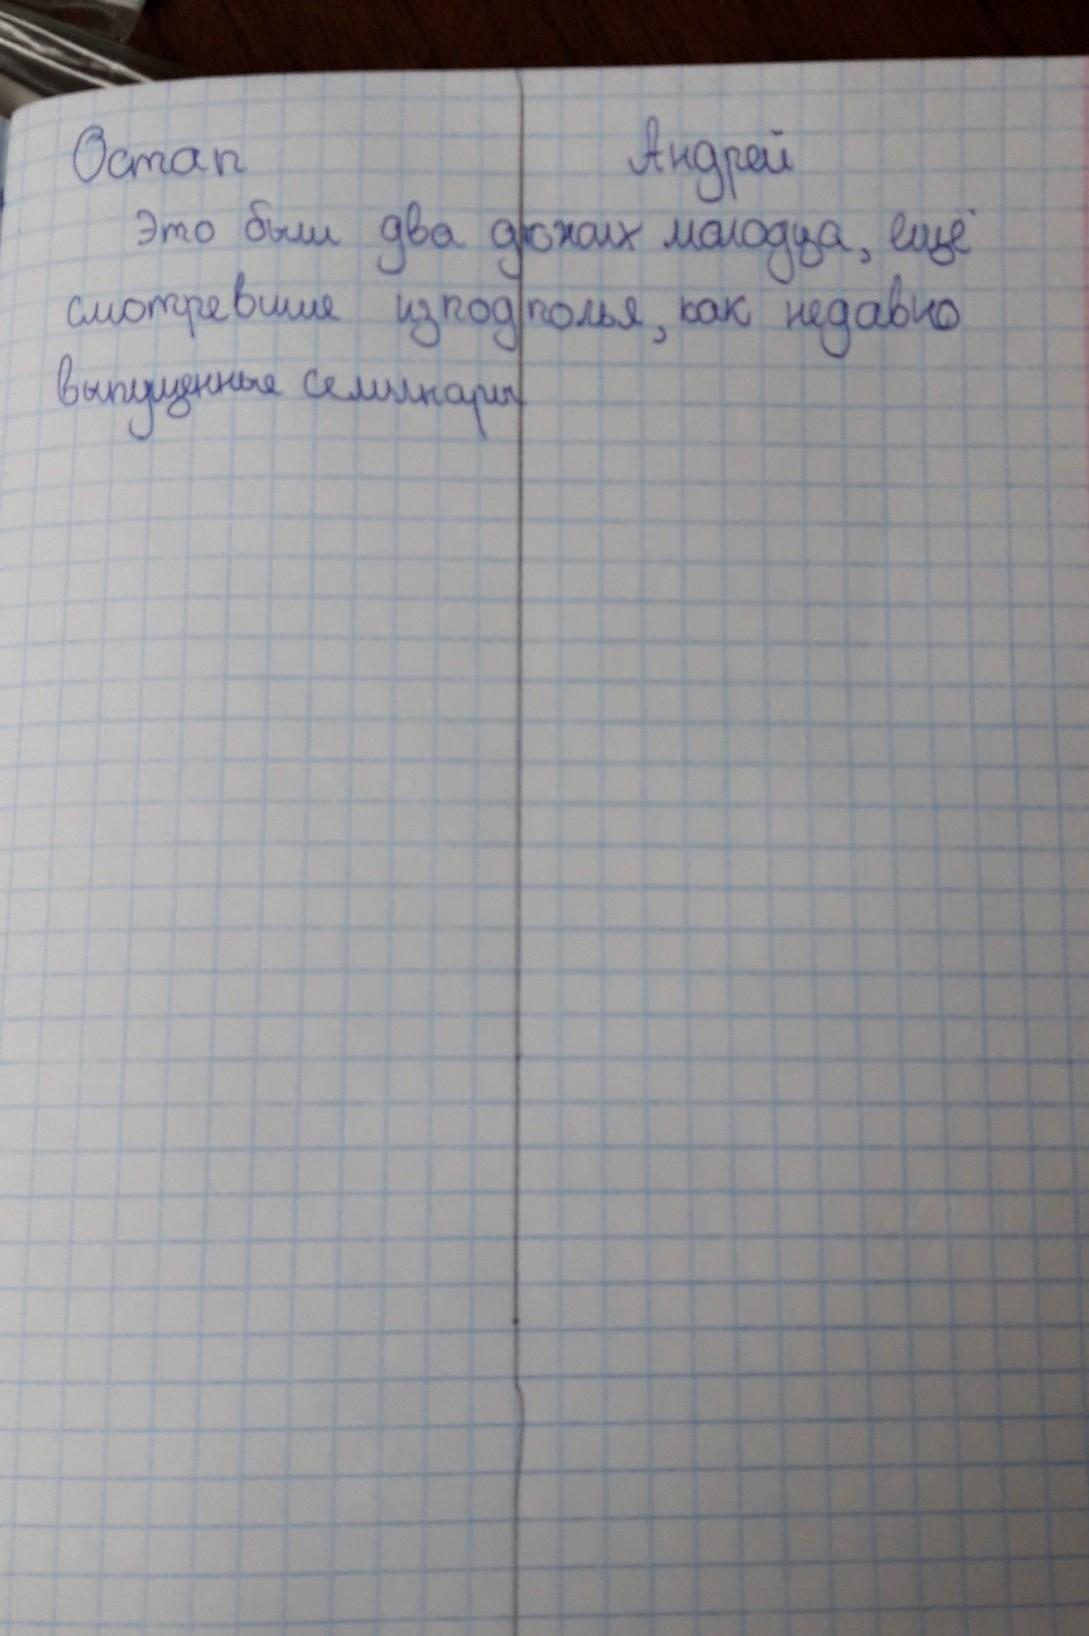 Остап Андрей
Это были два дюжих молодца, ещё
смотревшие изподполья, как недавно
выпущенные семинары